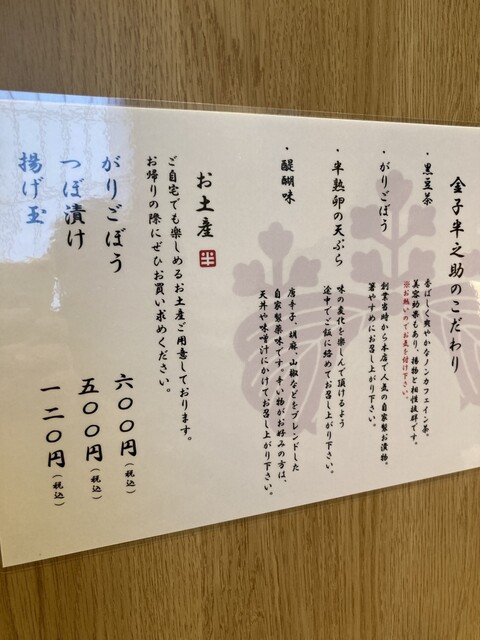 金子半之助のこだわり
・黒豆茶
香ばしく爽やかなノンカフェイン茶。
美容効果もあり、揚物と相性抜群です。
※お熱いのでお気を付け下さい。
・がりごぼう
創業当時から本店で人気の自家製お漬物。
箸やすめにお召し上がり下さい。
・半熟卵の天ぷら
味の変化を楽しんで頂けるよう
途中でご飯に絡めてお召し上がり下さい。
・醍醐味
唐辛子、胡麻、山椒などをブレンドした
自家製薬味です。辛い物がお好みの方は、
天丼や味噌汁にかけてお召し上がり下さい。
お土産
半
ご自宅でも楽しめるお土産ご用意しております。
お帰りの際にぜひお買い求めください。
がりごぼう 六〇〇円(税込)
つぼ漬け 五〇〇円(税込)
揚げ玉 一二〇円(税込)